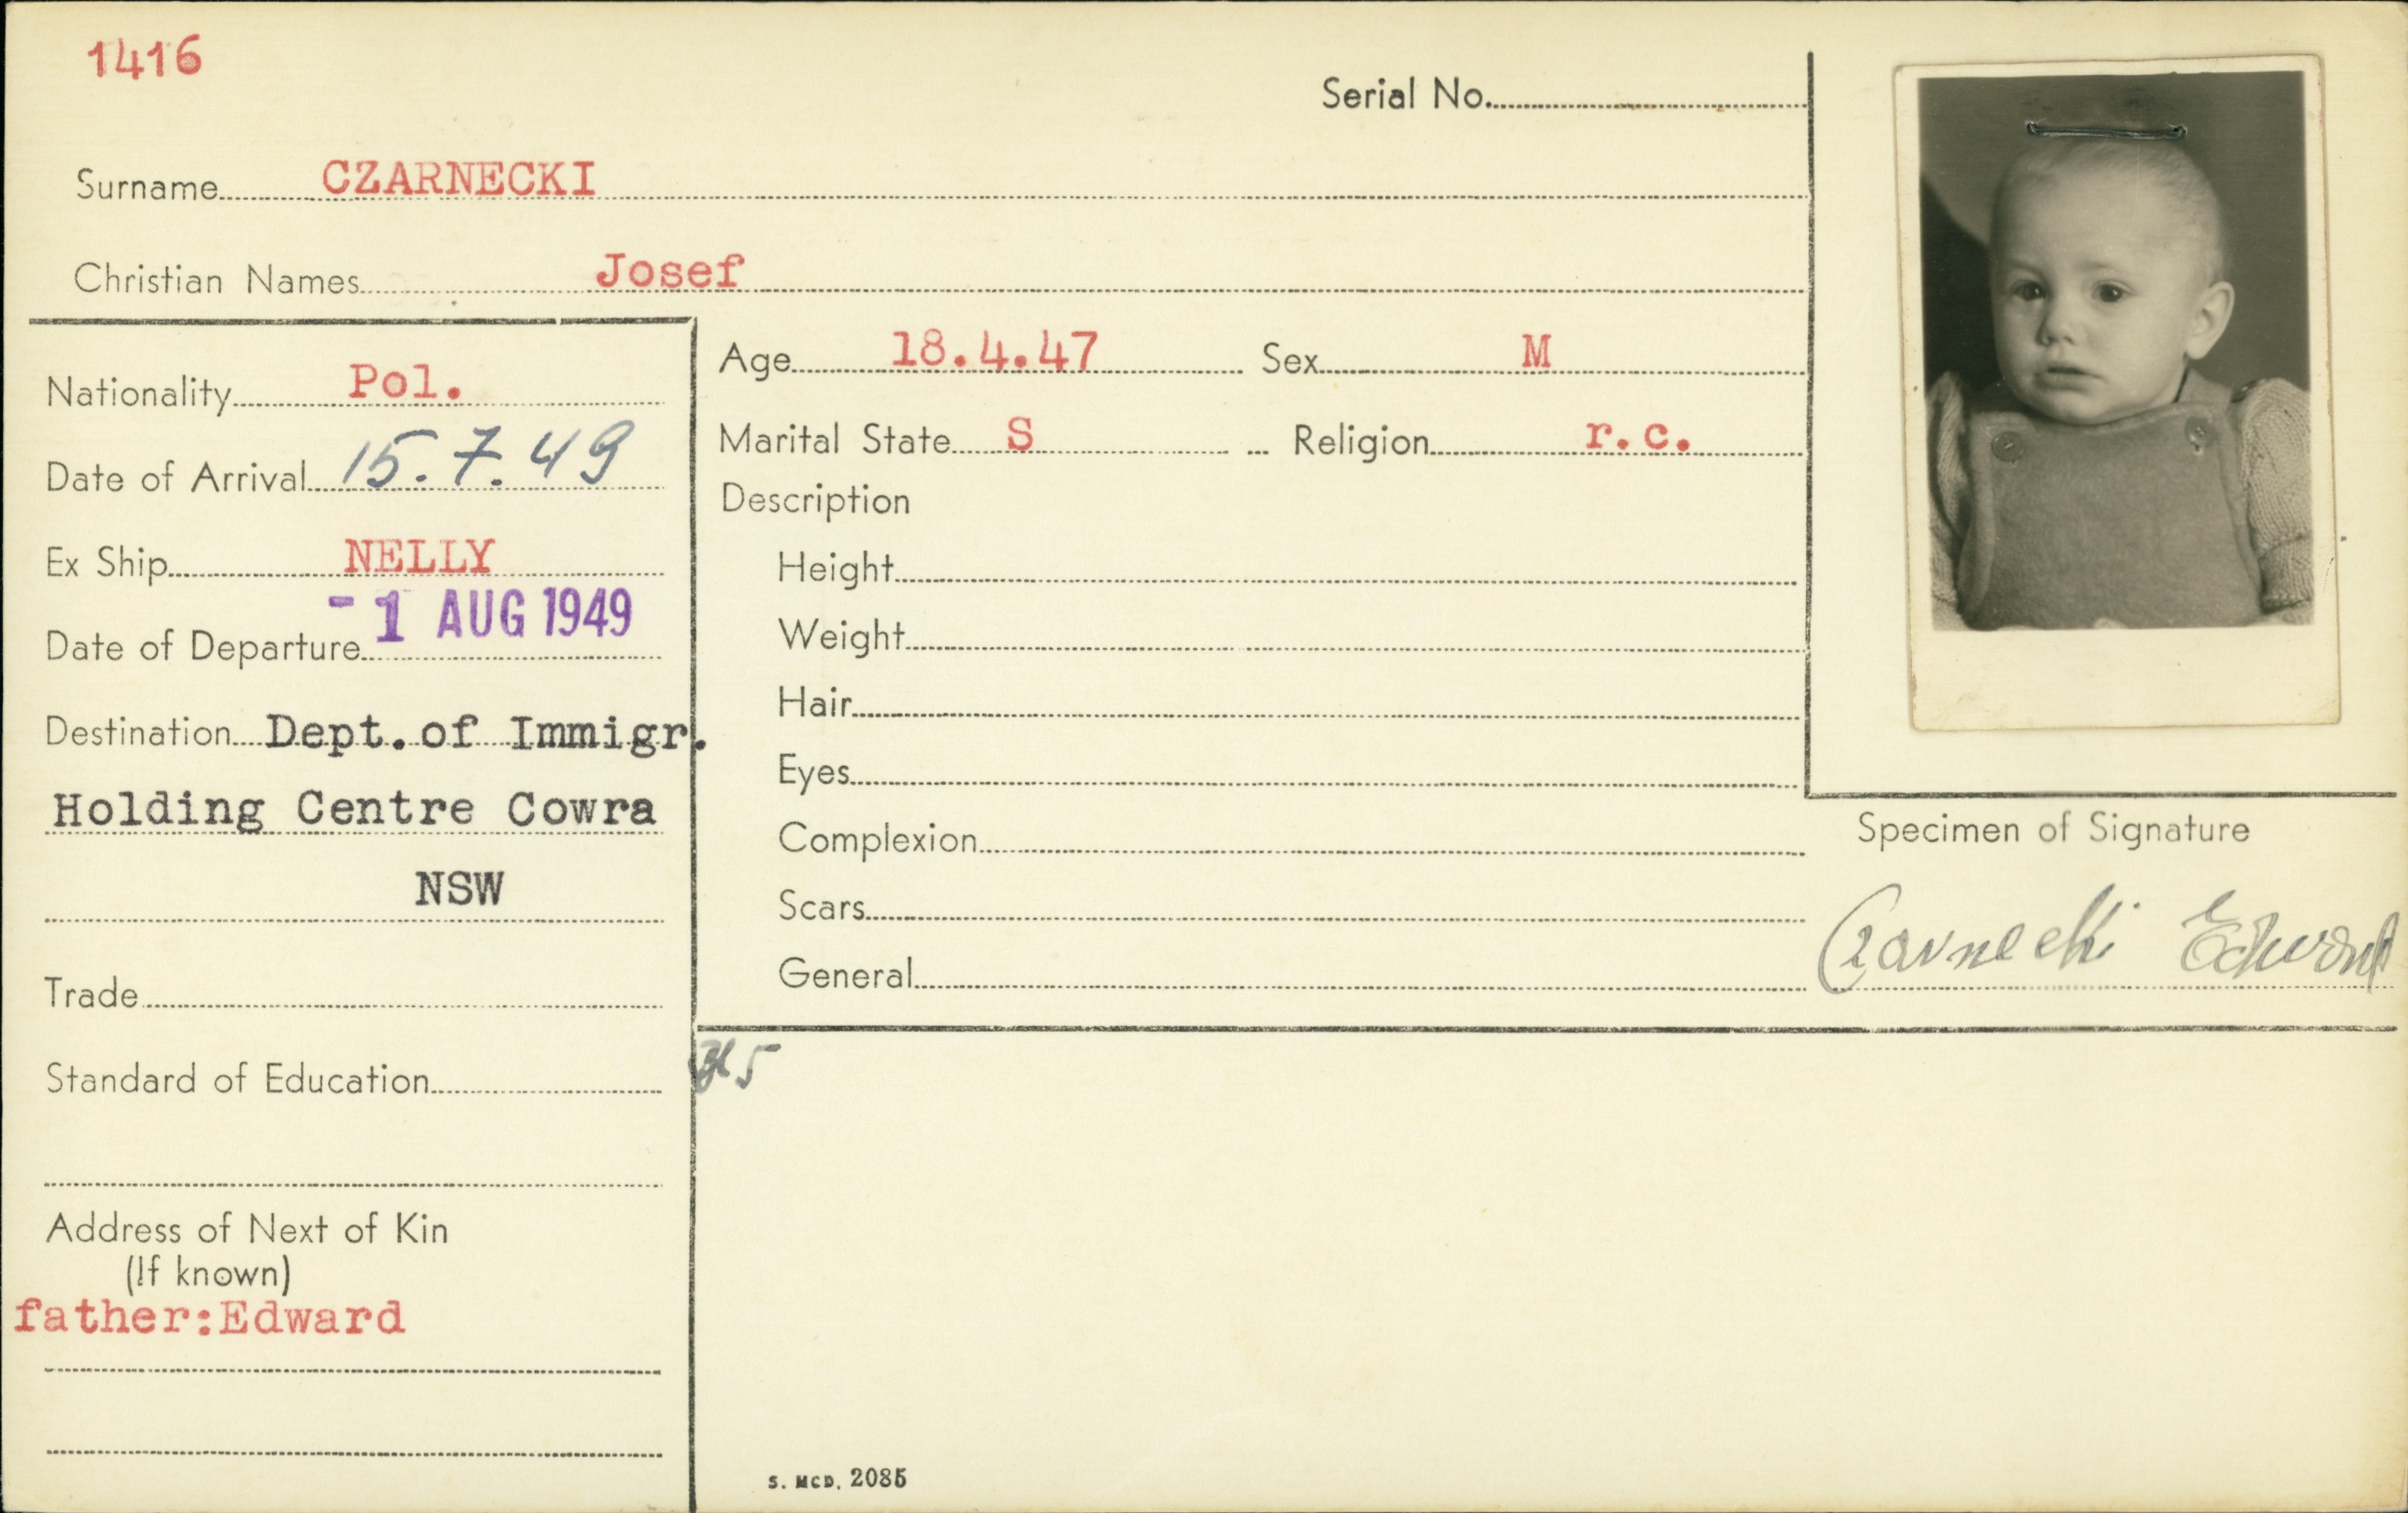 1416
Serial No.
Surname CZARNECKI
Christian Names Josef
Nationality Pol.
Date of Arrival 15.7.49
Ex Ship NELLY
Date of Departure - 1 AUG 1949
Destination Dept. of Immigr.
Holding Centre Cowra
NSW
Trade
Standard of Education
Address of Next of Kin
(If known)
father:Edward
Age 18.4.47 Sex M
Marital State S Religion r.c.
Description
Height
Weight
Hair
Eyes
Complexion
Scars
General
Specimen of Signature
Czarnecki Edward
S. McD. 2085